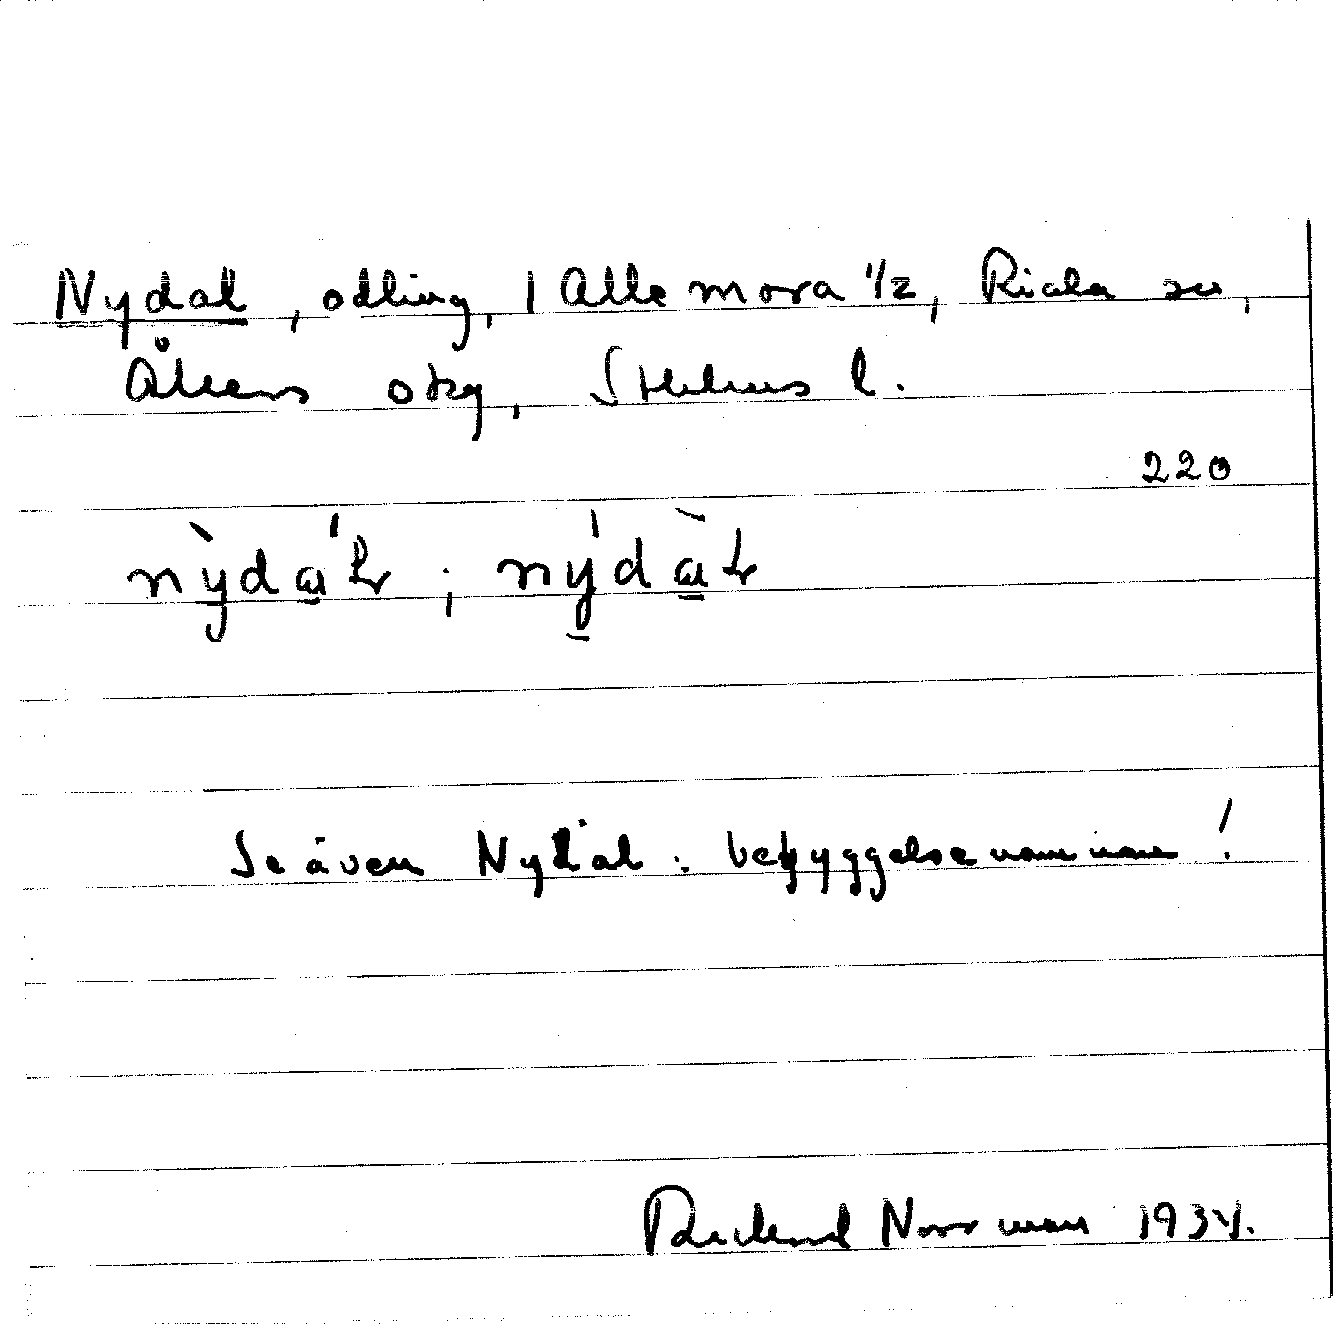 Nydal, odling, i Allemora 1/2, Riala sn,
Åkers skg, Sthlms l.
220
Se även Nydal: bebyggelsenamnen!
Rickard Norrman 1934.